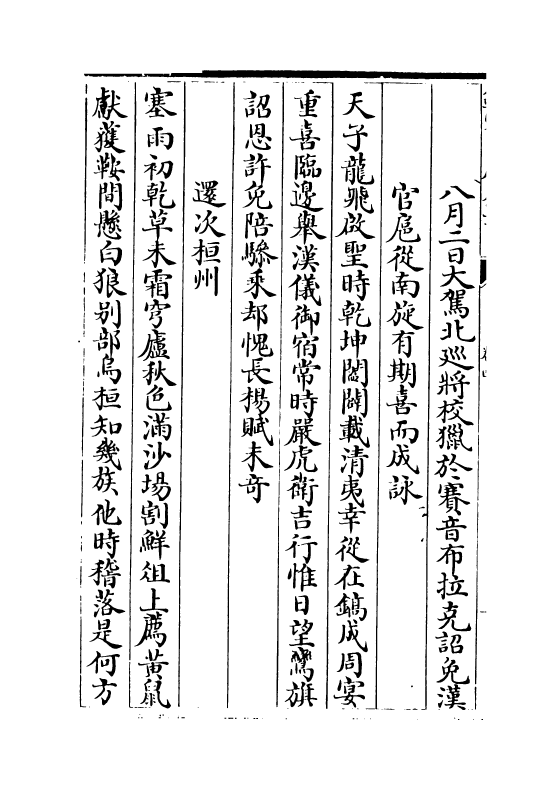 八月二日大駕北廵將校獵於賽音布拉克詔免漢
官扈從南旋有期喜而成詠
天子龍飛啟聖時乾坤闔闢載清夷幸從在鎬成周宴
重喜臨邊舉漢儀御宿常時嚴虎衛吉行惟日望鸞旗
詔恩許免陪驂乘却愧長楊賦未奇
還次桓州
塞雨初乾草未霜穹廬秋色滿沙場割鮮俎上薦黃鼠
獻獲鞍間懸白狼别部烏桓知幾族他時稽落是何方